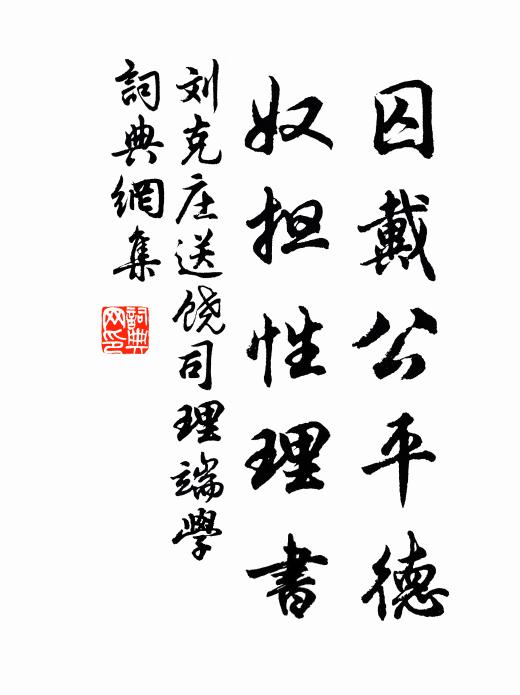 囚戴公平德
奴担性理書
刘克庄送饶司理端學
詞典網集
詞典网印